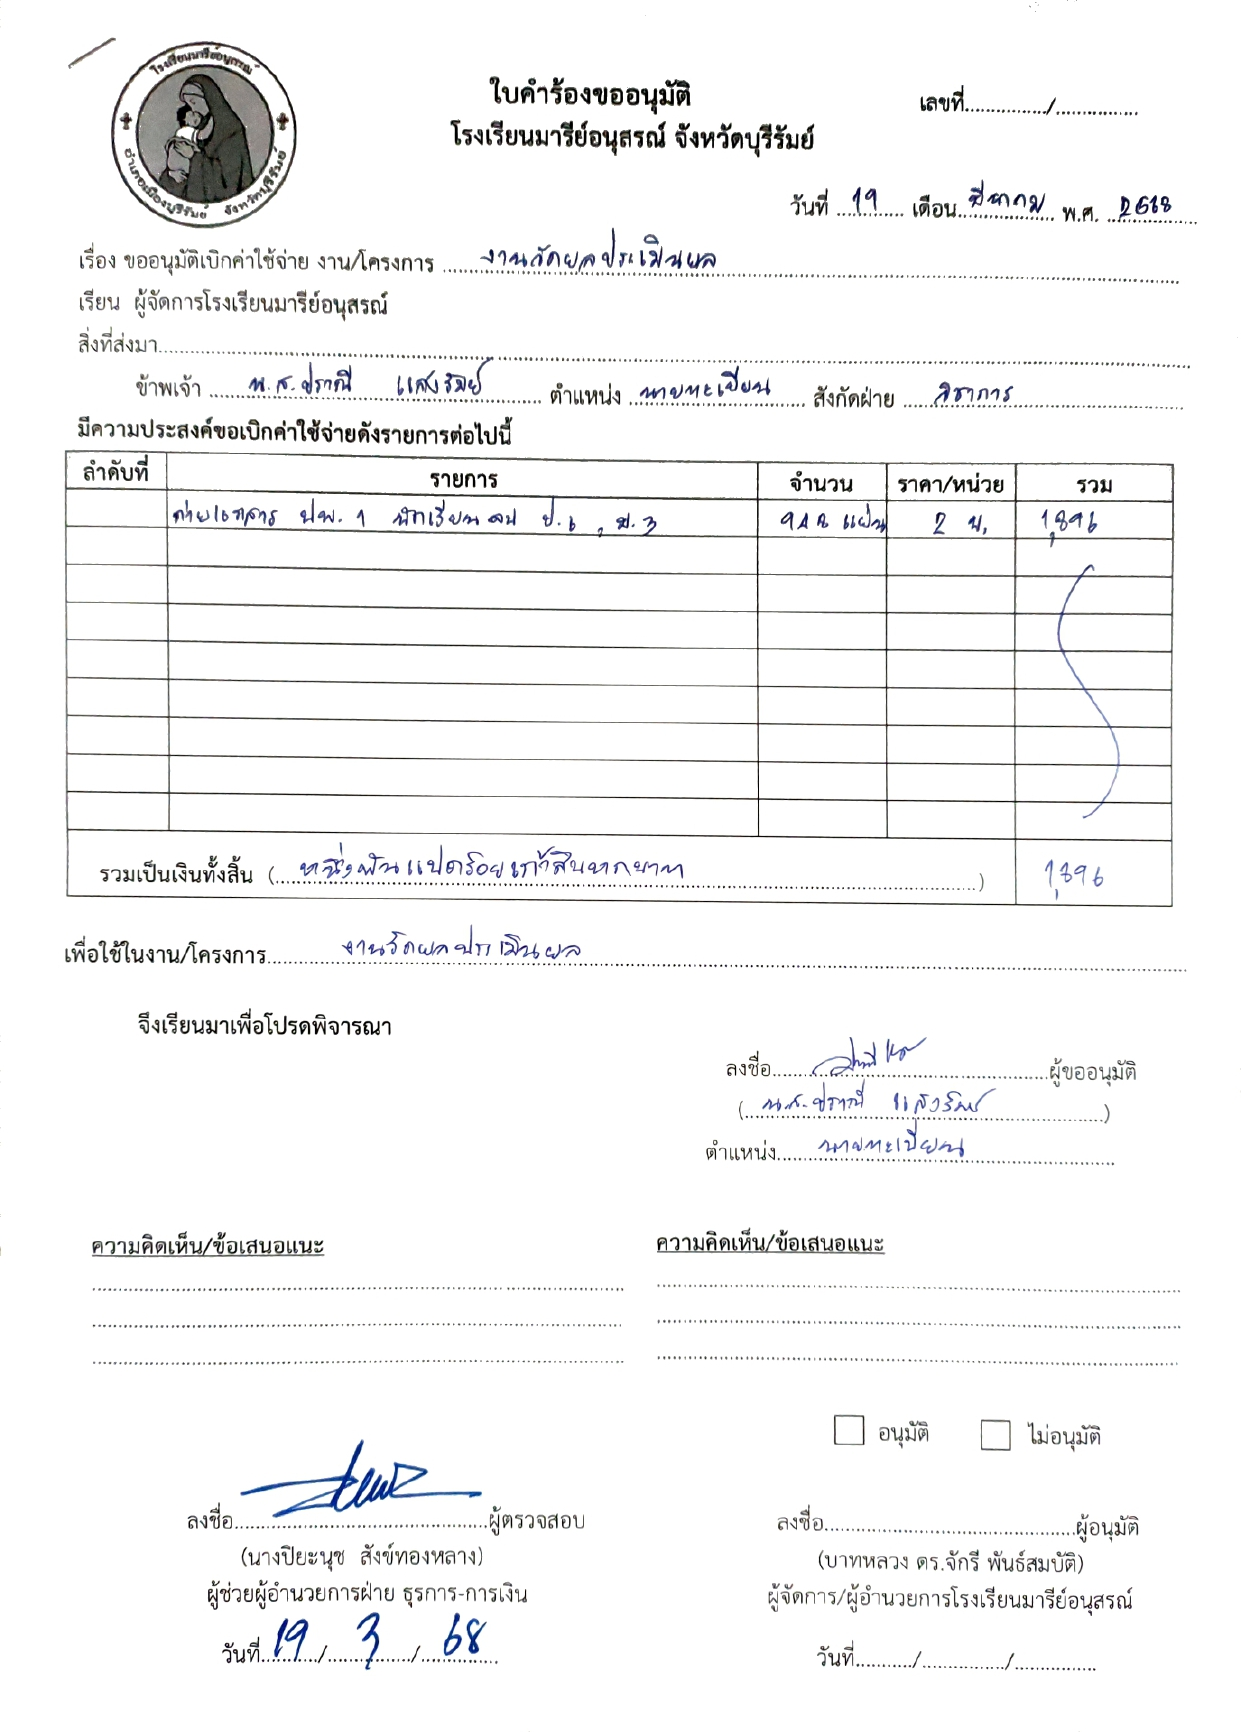 โรงเรียนมารีย์อนุสรณ์
อำเภอเมืองบุรีรัมย์ จังหวัดบุรีรัมย์
ใบคำร้องขออนุมัติ
เลขที่............../...............
โรงเรียนมารีย์อนุสรณ์ จังหวัดบุรีรัมย์
วันที่ 19 เดือน มีนาคม พ.ศ. 2568
เรื่อง ขออนุมัติเบิกค่าใช้จ่าย งาน/โครงการ งานวัดผลประเมินผล
เรียน ผู้จัดการโรงเรียนมารีย์อนุสรณ์
สิ่งที่ส่งมา
ข้าพเจ้า น.ส.ปราณี แสงรัมย์ ตำแหน่ง นายทะเบียน สังกัดฝ่าย วิชาการ
มีความประสงค์ขอเบิกค่าใช้จ่ายดังรายการต่อไปนี้
ลำดับที่ รายการ จำนวน ราคา/หน่วย รวม
ถ่ายเอกสาร ปพ. 1 นักเรียนจบ ป.6 , ม.3 948 แผ่น 2 บ. 1,896
รวมเป็นเงินทั้งสิ้น (หนึ่งพันแปดร้อยเก้าสิบหกบาท) 1,896
เพื่อใช้ในงาน/โครงการ งานวัดผลประเมินผล
จึงเรียนมาเพื่อโปรดพิจารณา
ลงชื่อ ผู้ขออนุมัติ
(น.ส.ปราณี แสงรัมย์)
ตำแหน่ง นายทะเบียน
ความคิดเห็น/ข้อเสนอแนะ ความคิดเห็น/ข้อเสนอแนะ
อนุมัติ ไม่อนุมัติ
ลงชื่อ ผู้ตรวจสอบ ลงชื่อ ผู้อนุมัติ
(นางปิยะนุช สังข์ทองหลาง) (บาทหลวง ดร.จักรี พันธ์สมบัติ)
ผู้ช่วยผู้อำนวยการฝ่าย ธุรการ-การเงิน ผู้จัดการ/ผู้อำนวยการโรงเรียนมารีย์อนุสรณ์
วันที่ 19 / 3 / 68 วันที่........../.............../...............